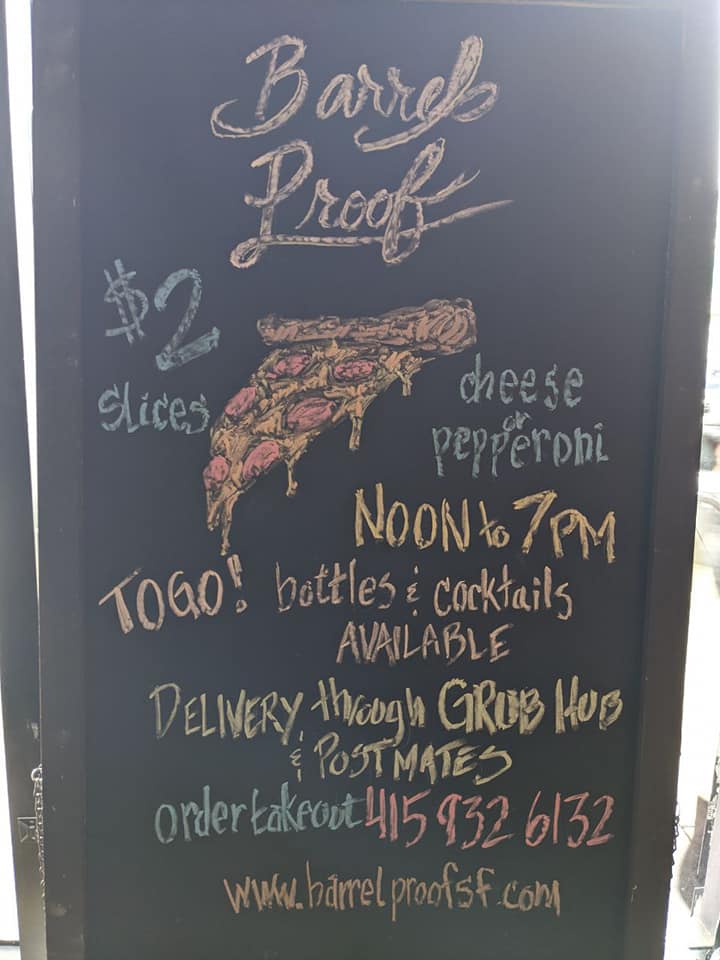 Barrel
Proof
$2
slices
cheese
or
pepperoni
NOON to 7PM
TOGO! bottles & cocktails
AVAILABLE
DELIVERY through GRUB HUB
& POSTMATES
order takeout 415 932 6132
www.barrelproofsf.com